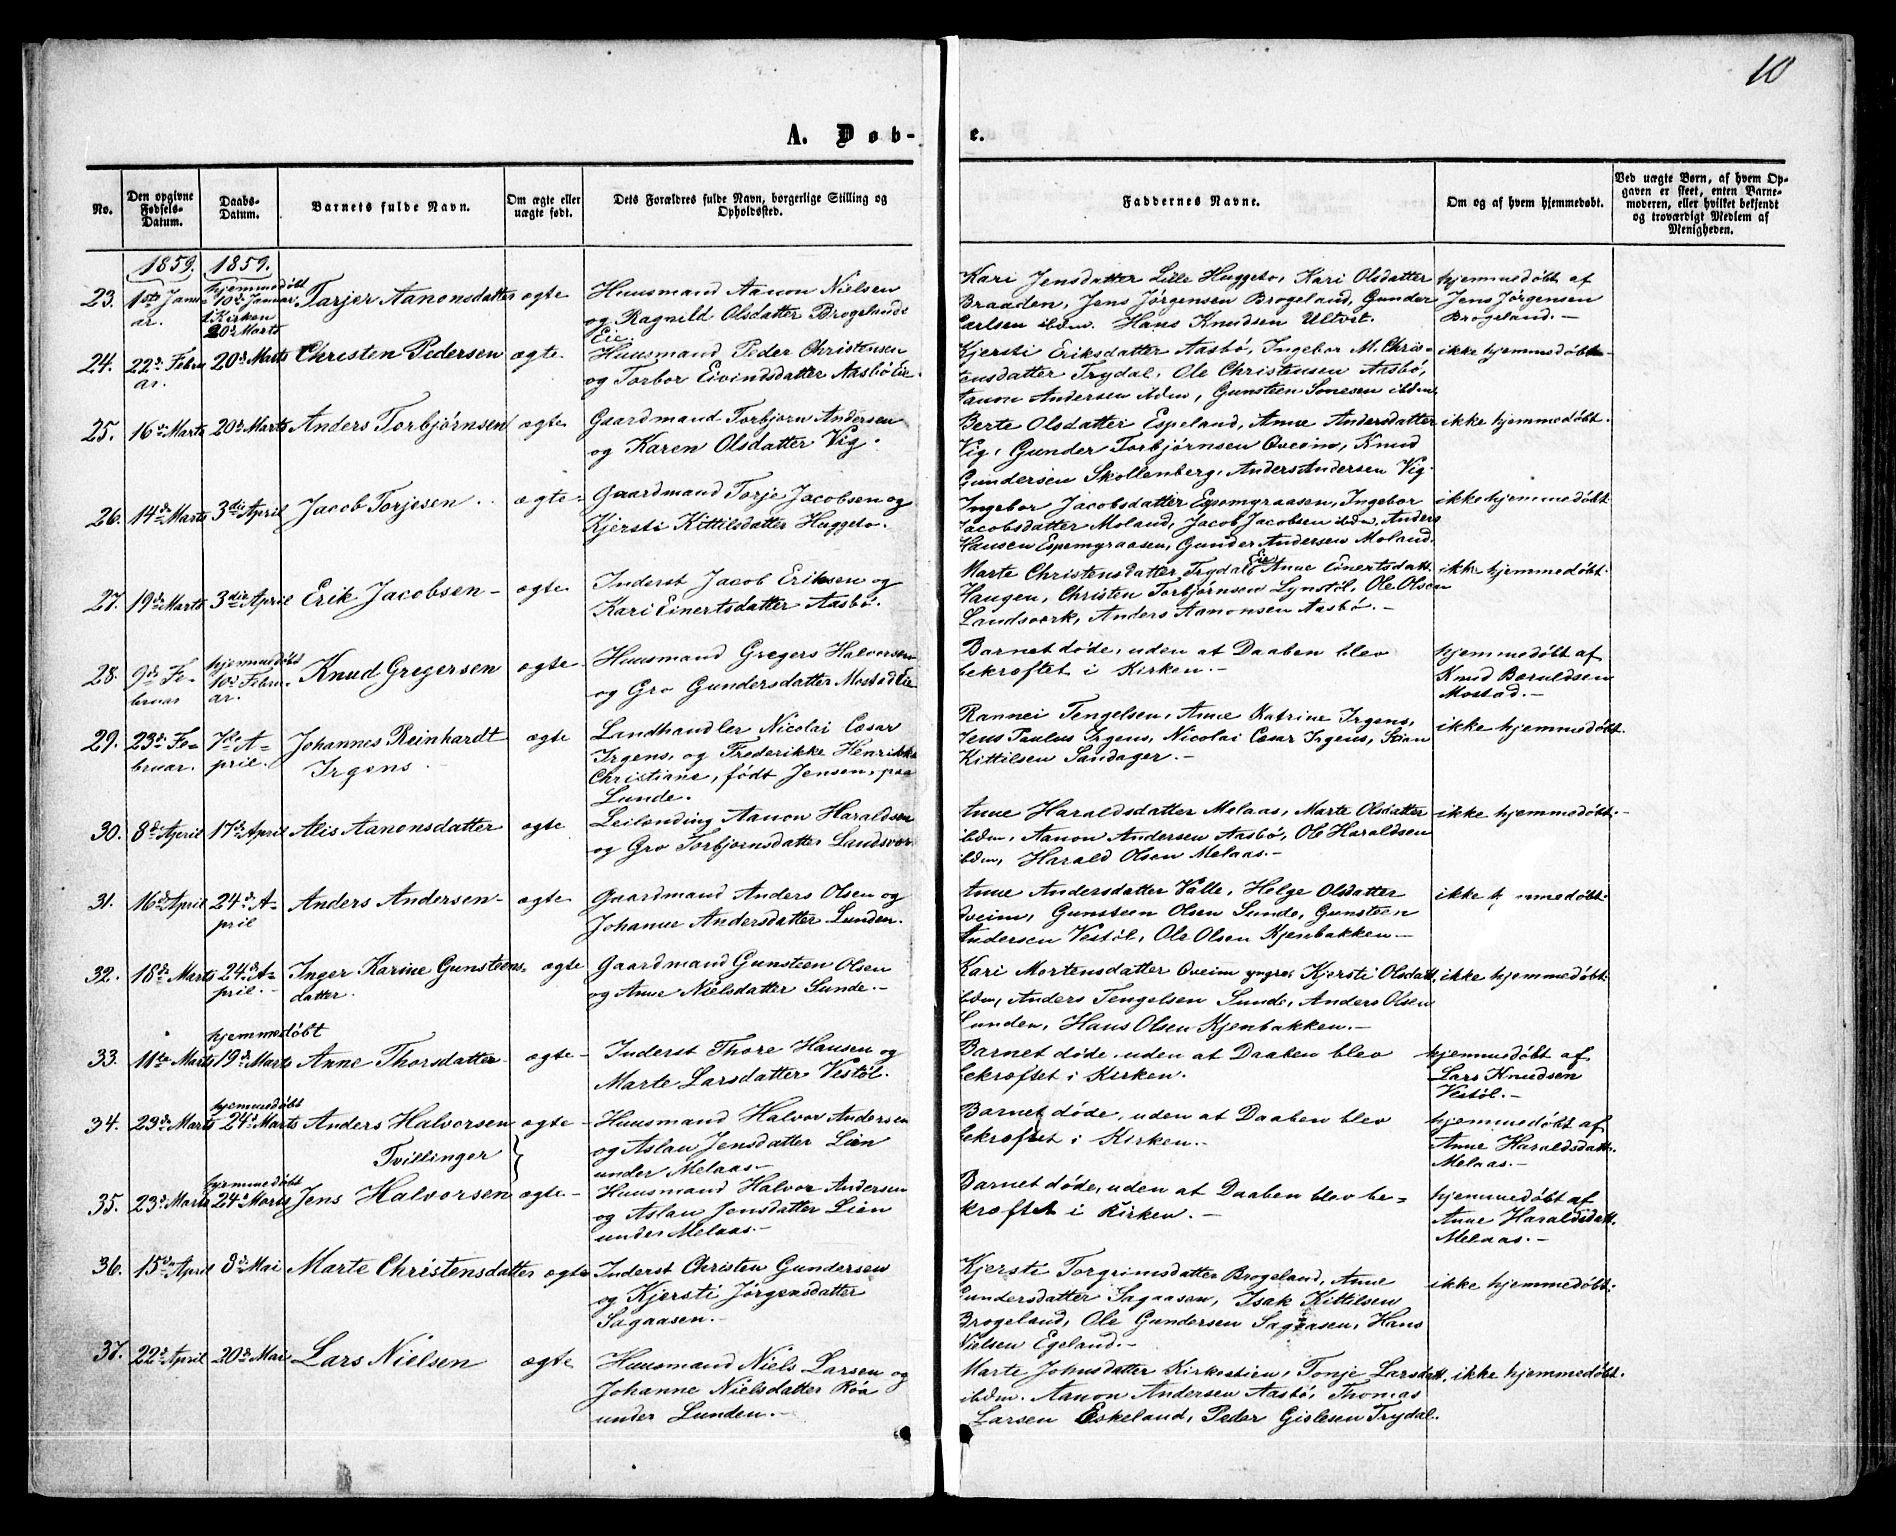 10
A. Døb-
e.
No.
Den opgivne Fødsels-Datum.
Daabs-Datum.
Barnets fulde Navn.
Om ægte eller uægte født.
Dets Forældres fulde Navn, borgerlige Stilling og Opholdssted.
Faddernes Navne.
Om og af hvem hjemmedøbt.
Ved uægte Børn, af hvem Opgaven er skeet, enten Barnemoderen, eller hvilket bekjendt og troværdigt Medlem af Menigheden.
1859. 1859.
23. 1ste Januar. hjemmedøbt 10de Januar, i Kirken 20de Marts Tarjer Aanonsdatter ægte
Huusmand Aanon Nielsen
og Ragnild Olsdatter Brogelands
Eie
Kari Jensdatter Lille Huggeto, Kari Olsdatter
Braaden, Jens Jørgensen Brogeland, Gunder
Carlsen ibdm. Hans Knudsen Ultvet.
hjemmedøbt af
Jens Jørgensen
Brogeland.-
24. 22de Februar. 20de Marts Christen Pedersen ægte
Huusmand Peder Christensen
og Torbor Eivindsdatter Aasbø Eie.
Kjersti Eriksdatter Aasbø, Ingebor M. Chris-
tensdatter Trydal, Ole Christensen Aasbø,
Aanon Andersen ibdm, Gunsteen Sonesen ibdm.
ikke hjemmedøbt.
25. 16de Marts 20de Marts Anders Torbjørnsen ægte
Gaardmand Torbjørn Andersen
og Karen Olsdatter Vig.
Berte Olsdatter Espeland, Anne Andersdatter
Vig, Gunder Torbjørnsen Qveim, Knud
Gundersen Skollenberg, Anders Andersen Vig.
ikke hjemmedøbt.
26. 14de Marts 3die April Jacob Torjesen. ægte
Gaardmand Torje Jacobsen og
Kjersti Kittilsdatter Huggeto.
Ingebor Jacobsdatter Espemyraasen, Ingebor
Jacobsdatter Moland, Jacob Jacobsen ibdm, Anders
Hansen Espemyraasen, Gunder Andersen Moland.
ikke hjemmedøbt
27. 19de Marts 3die April Erik Jacobsen- ægte
Inderst Jacob Eriksen og
Kari Einertsdatter Aasbø.
Marte Christensdatter Trydal Eie, Anne Einertsdatt.
Haugen, Christen Torbjørnsen Lynstøl, Ole Olsen
Landsværk, Anders Aanonsen Aasbø.-
ikke hjemmedøbt.
28. 9de Februar hjemmedøbt 10de Februar. Knud Gregersen ægte
Huusmand Gregers Halvorsen
og Gro Gundersdatter Mostad Eie
Barnet døde, uden at Daaben blev
bekræftet i Kirken.-
hjemmedøbt af
Knud Baruldsen
Mostad.-
29. 23de Februar. 7de April. Johannes Reinhardt
Irgens
ægte
Landhandler Nicolai Cæsar
Irgens, og Frederikke Henrikke
Christiane, født Jensen, paa
Lunde.
Rannei Tengelsen, Anne Katrine Irgens,
Jens Paulus Irgens, Nicolai Cæsar Irgens, Stian
Kittilsen Sandager.-
ikke hjemmedøbt.
30. 8de April 17de April Alis Aanonsdatter ægte
Leilænding Aanon Haraldsen
og Gro Torbjørnsdatter Landsvær
Anne Haraldsdatter Melaas, Marte Olsdatter
ibdm, Aanon Andersen Aasbø, Ole Haraldsen
ibdm, Harald Olsen Melaas.-
ikke hjemmedøbt.-
31. 16de April 24de April Anders Andersen- ægte
Gaardmand Anders Olsen og
Johanne Andersdatter Lunden.
Anne Andersdatter Valle, Helge Olsdatter
Qveim, Gunsteen Olsen Sunde, Gunsteen
Andersen Vestøl, Ole Olsen Kjenbakken-
ikke hjemmedøbt.
32. 18de Marts 24de April.- Inger Karine Gunsteens-
datter.
ægte
Gaardmand Gunsteen Olsen
og Anne Nielsdatter Sunde.-
Kari Mortensdatter Qveim yngre, Kjersti Olsdatt.
ibdm, Anders Tengelsen Sunde, Anders Olsen
Lunden, Hans Olsen Kjenbakken.-
ikke hjemmedøbt.
33. 11te Marts hjemmedøbt 19de Marts Anne Thorsdatter ægte-
Inderst Thore Hansen og
Marte Larsdatter Vestøl.
Barnet døde, uden at Daaben blev
bekræftet i Kirken.
hjemmedøbt af
Lars Knudsen
Vestøl.-
34. 23de Marts hjemmedøbt 24de Marts Anders Halvorsen ægte-
Tvillinger
Huusmand Halvor Andersen
og Aslau Jensdatter Lien
under Melaas-
Barnet døde, uden at Daaben blev
bekræftet i Kirken.-
hjemmedøbt af
Anne Haraldsdatt.
Melaas.-
35. 23de Marts hjemmedøbt 24de Marts Jens Halvorsen ægte-
Huusmand Halvor Andersen
og Aslau Jensdatter Lien
under Melaas-
Barnet døde, uden at Daaben blev be-
kræftet i Kirken.-
hjemmedøbt af
Anne Haraldsdatt.
Melaas.-
36. 15de April 8de Mai Marte Christensdatter ægte
Inderst Christen Gundersen
og Kjersti Jørgensdatter
Sagaasen.-
Kjersti Torgrimsdatter Brogeland, Anne
Gundersdatter Sagaasen, Isak Kittilsen
Brogeland, Ole Gundersen Sagaasen, Hans
Nielsen Egeland.-
ikke hjemmedøbt.
37. 22de April 20de Mai Lars Nielsen ægte
Huusmand Niels Larsen og
Johanne Nielsdatter Røa
under Lunden.-
Marte Johnsdatter Kirkestien, Tonje Larsdatt.
ibdm. Aanon Andersen Aasbø, Thomas
Larsen Eskeland, Peder Gislesen Trydal.
ikke hjemmedøbt.